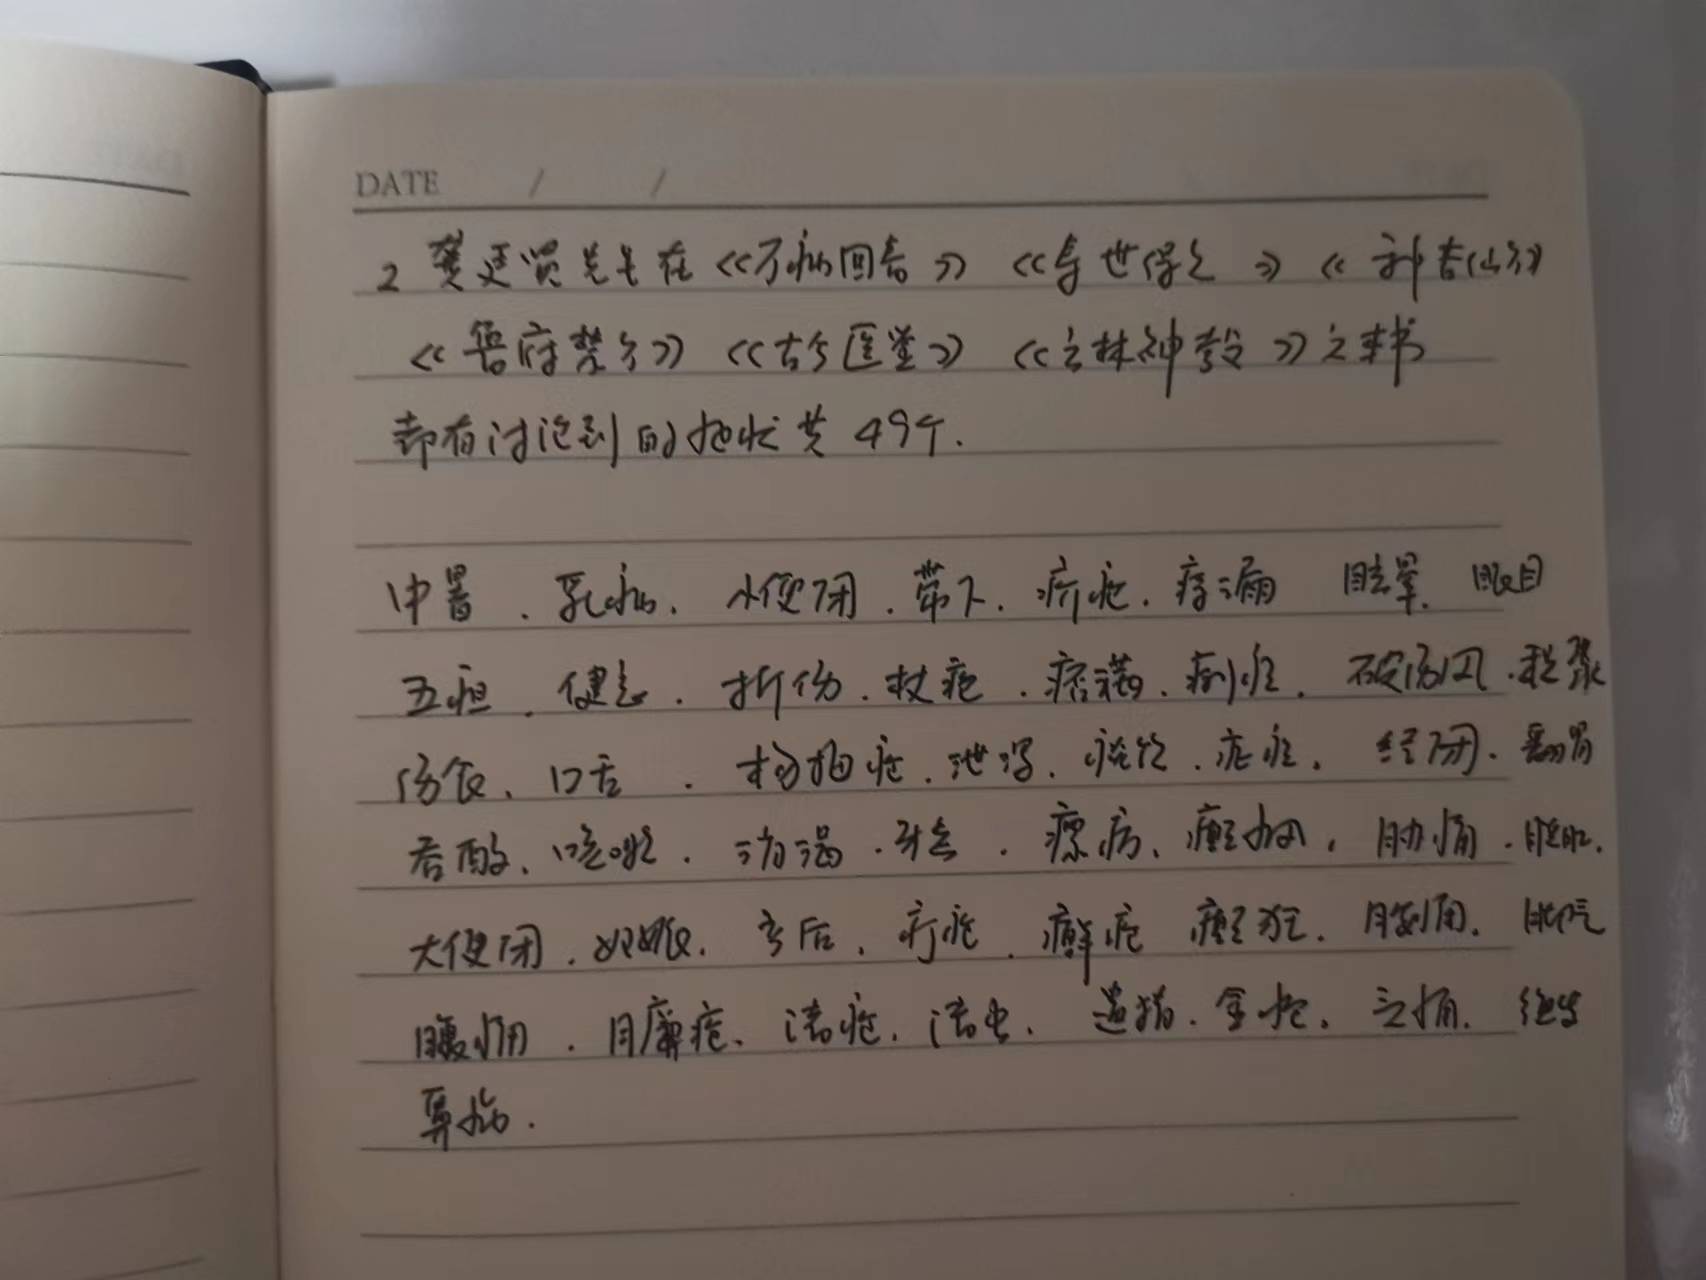 DATE / /
2 龚廷贤先生在《万病回春》《寿世保元》《种杏仙方》
《鲁府禁方》《古今医鉴》《云林神彀》六本书
都有讨论到的症状共49个.
中暑.乳病.小便闭.带下.疥疮.痔漏 眩晕.眼目
五疸.健忘.折伤.杖疮.痞满.痢症.破伤风.积聚
伤食、口舌.杨梅疮.泄泻.痰饮.疟症.经闭.翻胃
吞酸、咳嗽.消渴.牙齿.瘰疬、癫痫.胁痛.
大便闭.妊娠.产后.疔疮.癣疮 癫狂.脚气
腹痛.臁疮、诸疮.诸虫.遗精.金疮.心痛.
鼻病.